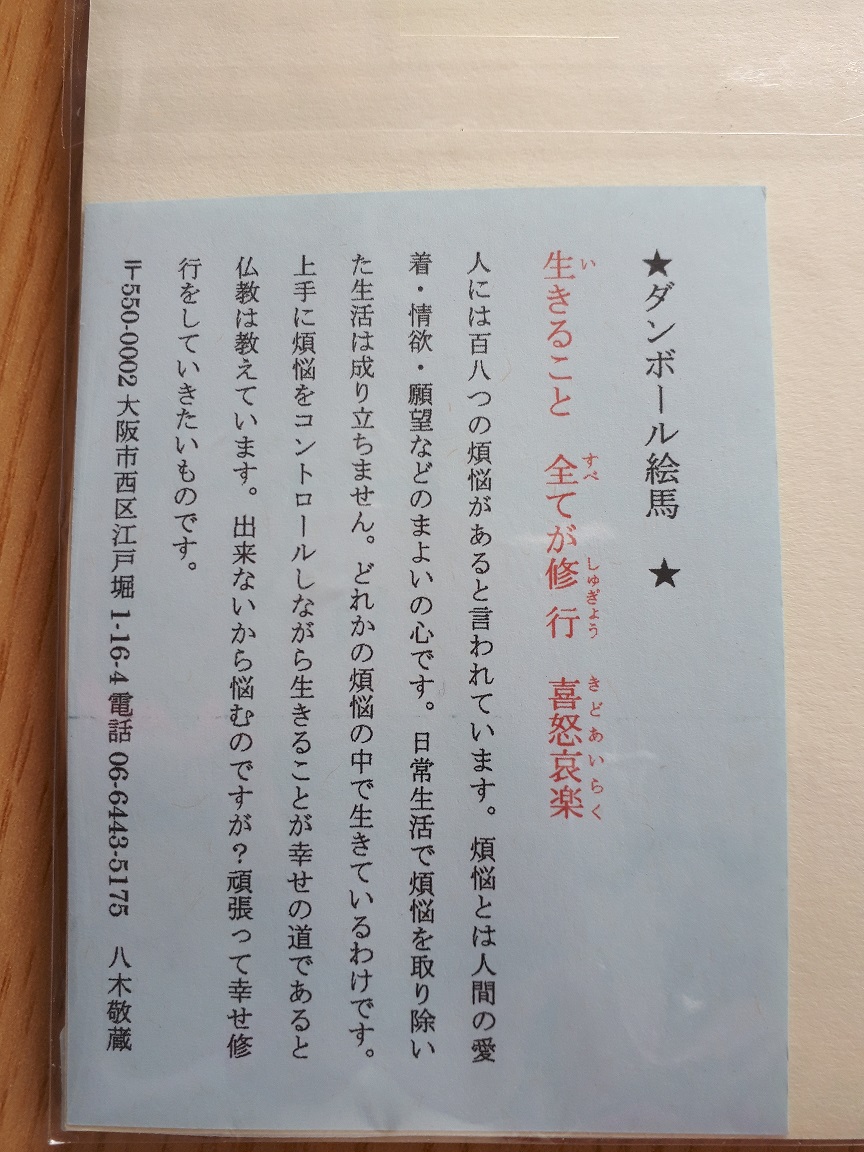 ★ダンボール絵馬　★
生きること　全てが修行　喜怒哀楽
い　すべ　しゅぎょう　きどあいらく
人には百八つの煩悩があると言われています。煩悩とは人間の愛
着・情欲・願望などのまよいの心です。日常生活で煩悩を取り除い
た生活は成り立ちません。どれかの煩悩の中で生きているわけです。
上手に煩悩をコントロールしながら生きることが幸せの道であると
仏教は教えています。出来ないから悩むのですが？頑張って幸せ修
行をしていきたいものです。
〒550-0002 大阪市西区江戸堀 1-16-4 電話 06-6443-5175　八木敬蔵